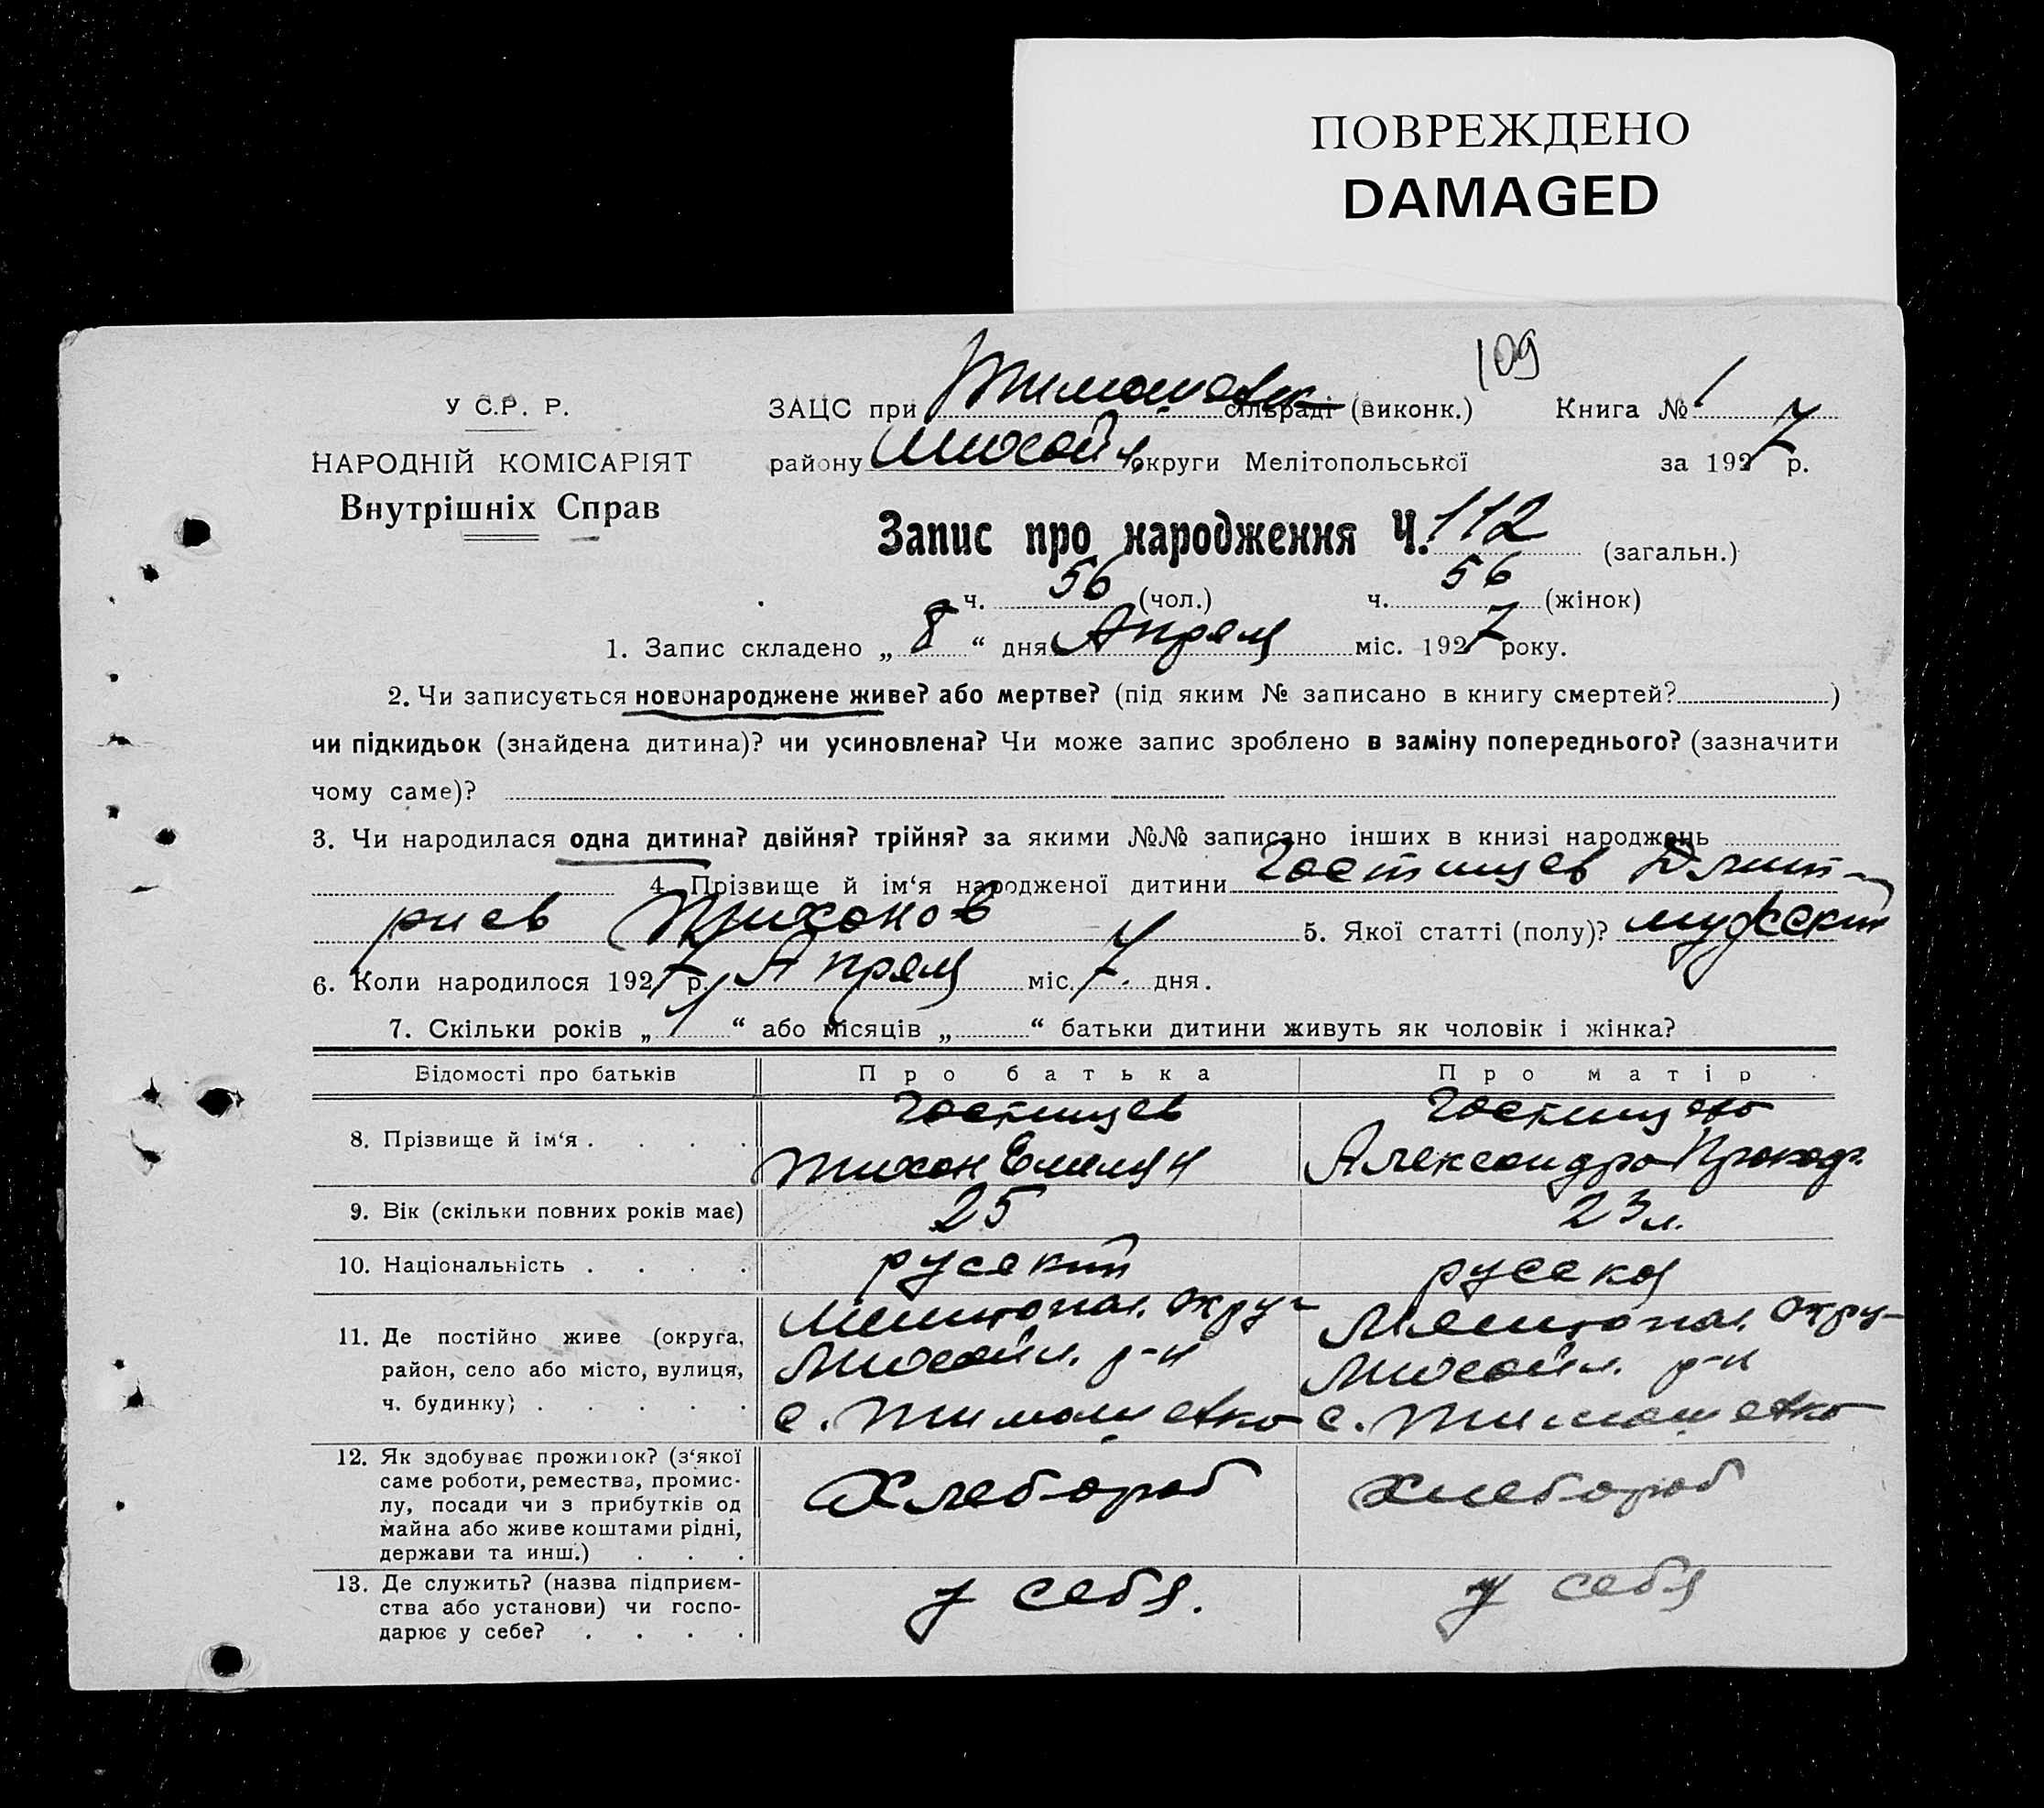 ПОВРЕЖДЕНО
DAMAGED
109
У С.Р. Р.
ЗАЦС при Тимошевк сільраді (виконк.) Книга № 1
НАРОДНІЙ КОМІСАРІЯТ
району Михайл. округи Мелітопольської за 1927 р.
Внутрішніх Справ
Запис про народження Ч. 112 (загальн.)
ч. 56 (чол.) ч. 56 (жінок)
1. Запис складено „ 8 “ дня Апреля міс. 1927 року.
2. Чи записується новонароджене живе? або мертве? (під яким № записано в книгу смертей? )
чи підкидьок (знайдена дитина)? чи усиновлена? Чи може запис зроблено в заміну попереднього? (зазначити
чому саме)?
3. Чи народилася одна дитина? двійня? трійня? за якими №№ записано інших в книзі народжень
4. Прізвище й ім‘я народженої дитини Гостищев Дмит-
риев Тихонов 5. Якої статті (полу)? мужский
6. Коли народилося 1927 р. Апреля міс. 7. дня.
7. Скільки років „ 1 “ або місяців „ “ батьки дитини живуть як чоловік і жінка?
Відомості про батьків Про батька Про матір
8. Прізвище й ім‘я . . . . Гостищев Тихон Емельян Гостищева Александра Прокоф.
9. Вік (скільки повних років має) 25 23 л.
10. Національність . . . . русский русская
11. Де постійно живе (округа, Мелитопол. округ Мелитопол. окру-
район, село або місто, вулиця, Михайл. р-н Михайл. р-н
ч. будинку) . . . . . с. Тимошевка с. Тимошевка
12. Як здобуває прожиток? (з‘якої
саме роботи, ремества, промис-
лу, посади чи з прибутків од Хлебороб Хлебороб
майна або живе коштами рідні,
держави та инш.) . . .
13. Де служить? (назва підприєм-
ства або установи) чи госпо- у себя. у себя
дарює у себе? . . . .